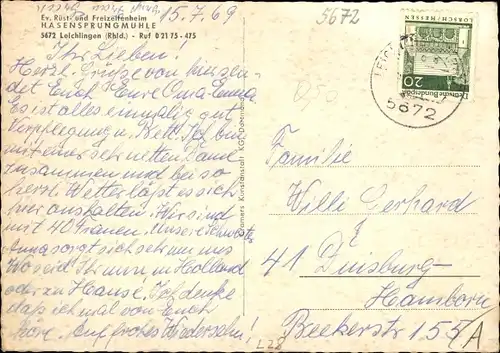 15.7.69
Ev. Rüst- und Freizeitenheim
HASENSPRUNGMÜHLE
5672 Leichlingen (Rhld.) - Ruf 0 21 75 - 475
Ihr Lieben!
Herzl. Grüße von hier sen-
det Euch Eure Oma Emma
Es ist alles einmalig gut
Verpflegung u. Bett. Ich bin
mit einer sehr netten Dame
zusammen und bei so
herrl. Wetter läßt es sich
hier aushalten. Wir sind
mit 40 Frauen. Unsere Schwester
Anna sorgt sich sehr um uns
Wo seid Ihr nun in Holland
oder zu Hause. Ich denke
daß ich mal von Euch
höre. Auf frohes Wiedersehn!
Kunstanstalt KG.
5672
LORSCH/HESSEN
20
Deutsche Bundespost
5672
Familie
Willi Gerhard
41 Duisburg-
Hamborn
Beekerstr 155/A
L28